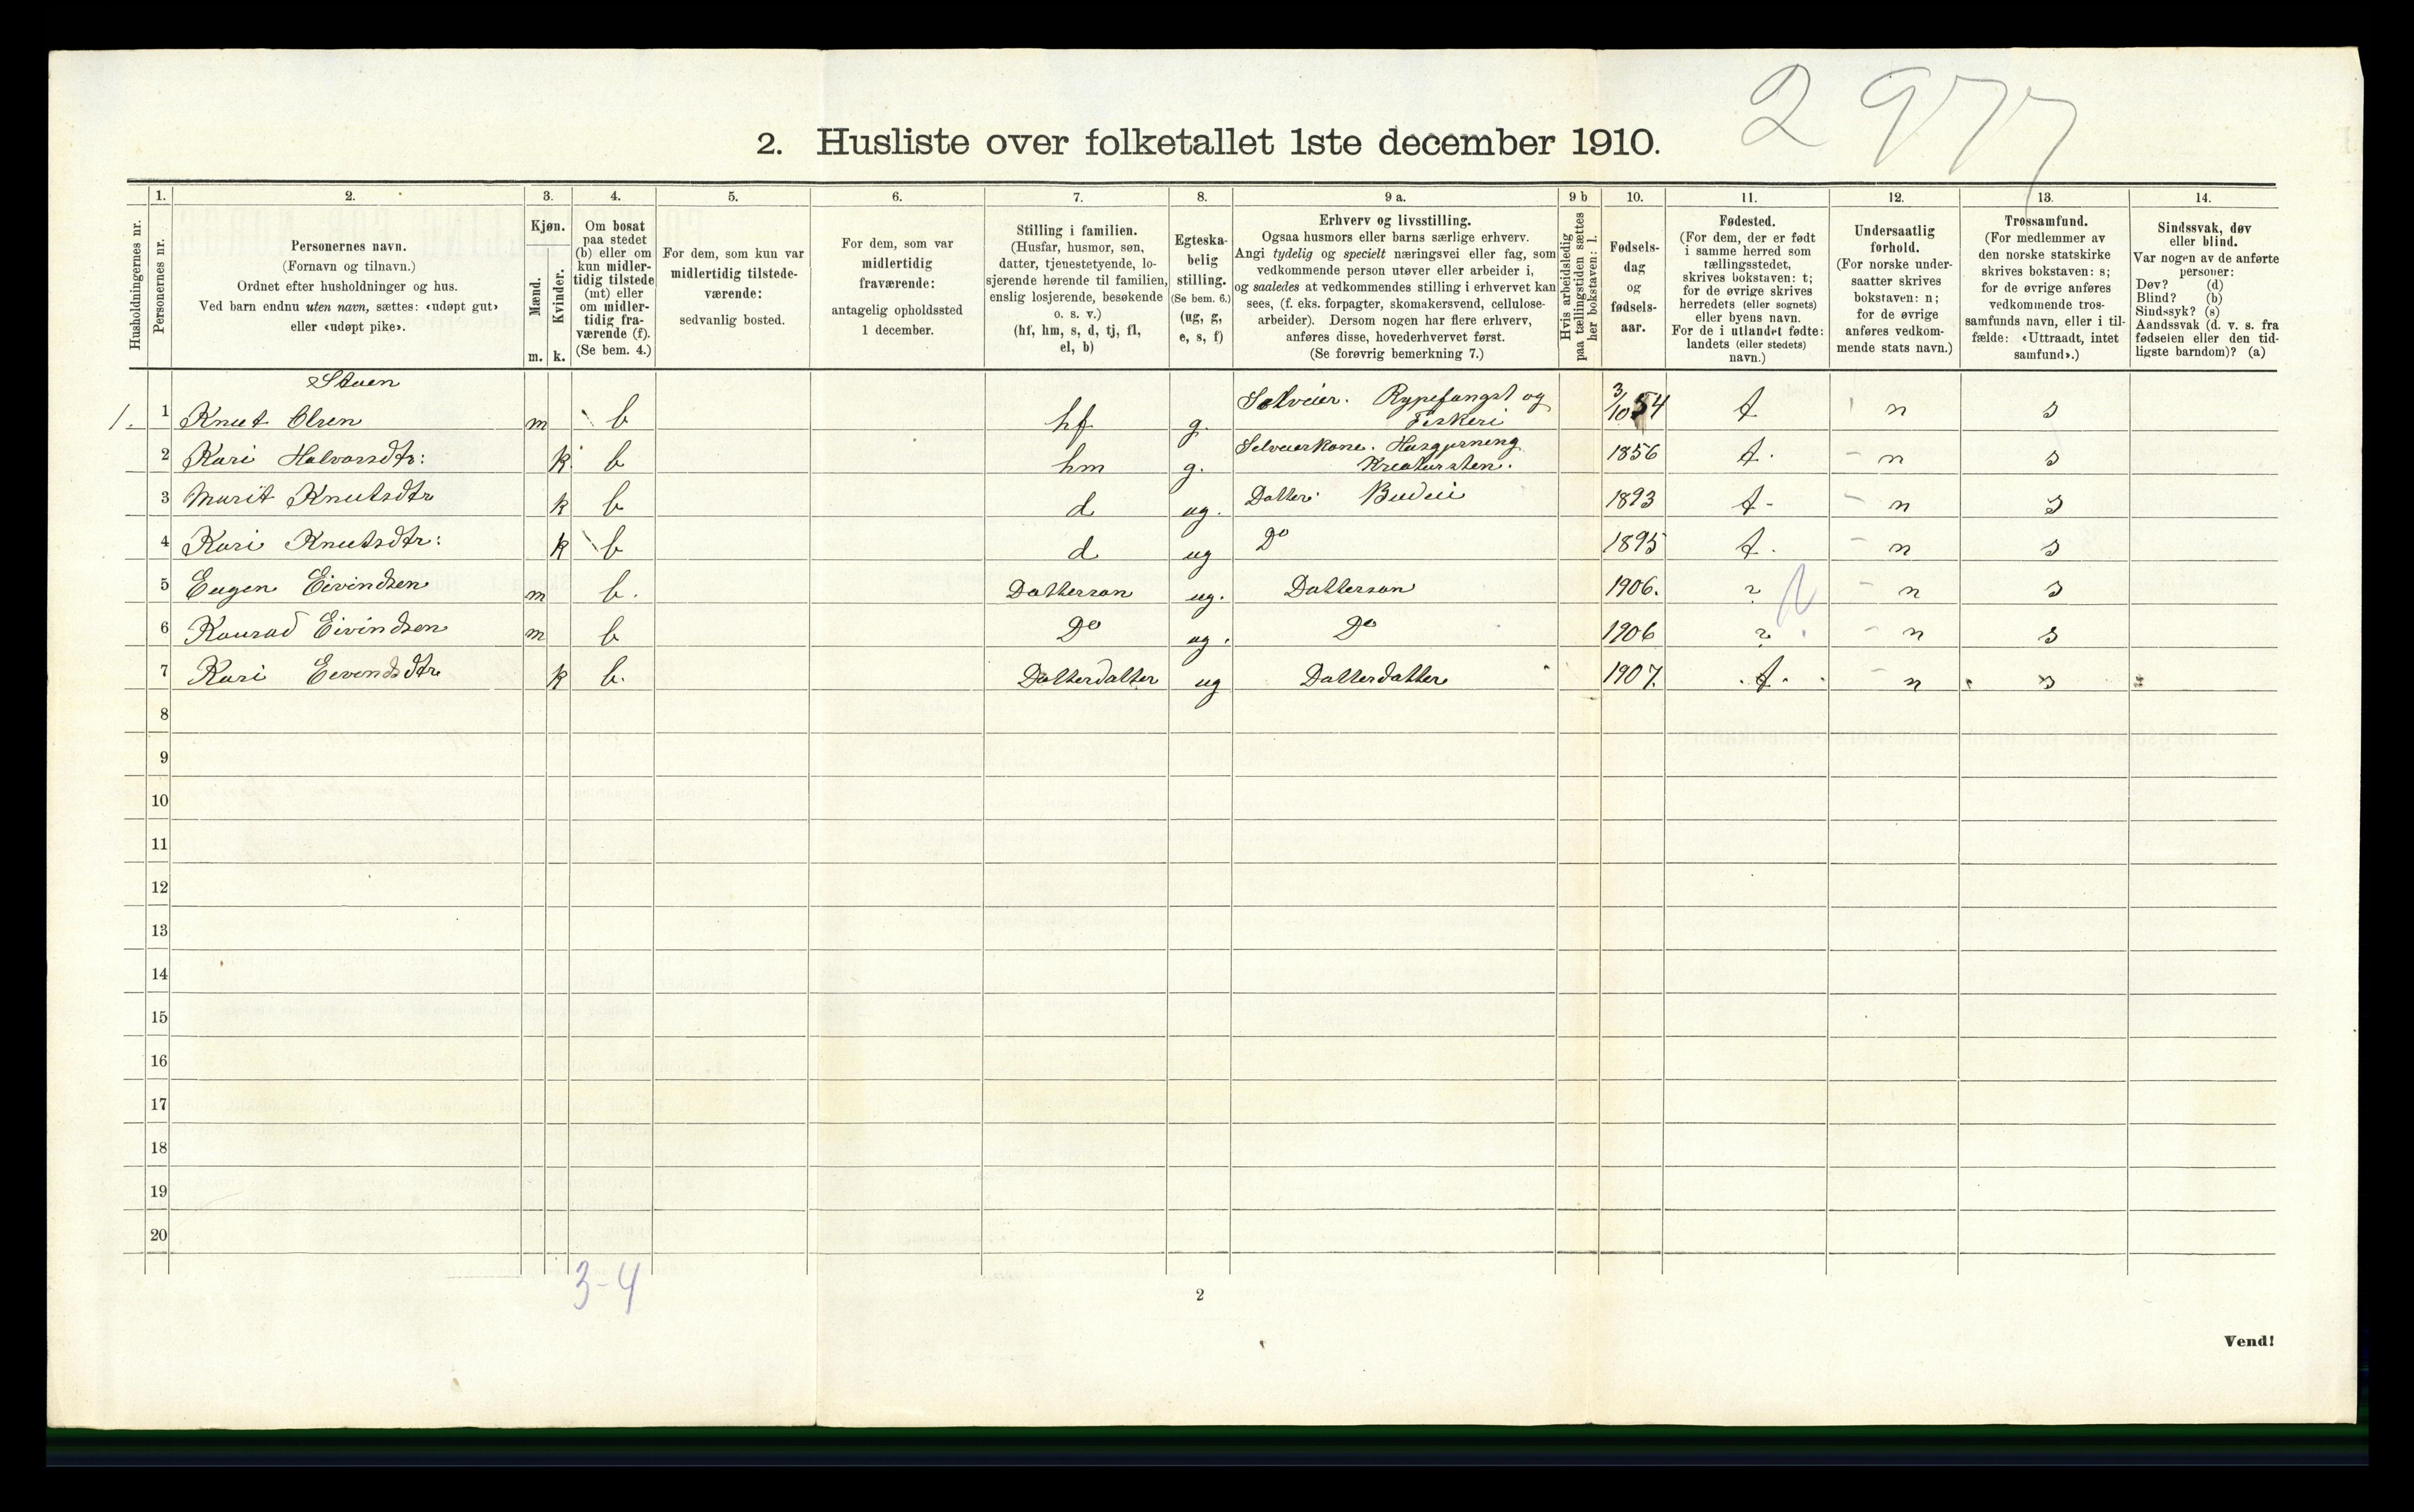 2977
2. Husliste over folketallet 1ste december 1910.
Husholdningernes nr.
1.
Personernes nr.
2.
Personernes navn.
(Fornavn og tilnavn.)
Ordnet efter husholdninger og hus.
Ved barn endnu uten navn, sættes: «udøpt gut»
eller «udøpt pike».
3.
Kjøn.
Mænd.
Kvinder.
m. k.
4.
Om bosat
paa stedet
(b) eller om
kun midler-
tidig tilstede
(mt) eller
om midler-
tidig fra-
værende (f).
(Se bem. 4.)
5.
For dem, som kun var
midlertidig tilstede-
værende:
sedvanlig bosted.
6.
For dem, som var
midlertidig
fraværende:
antagelig opholdssted
1 december.
7.
Stilling i familien.
(Husfar, husmor, søn,
datter, tjenestetyende, lo-
sjerende hørende til familien,
enslig losjerende, besøkende
o. s. v.)
(hf, hm, s, d, tj, fl,
el, b)
8.
Egteska-
belig
stilling.
(Se bem. 6.)
(ug, g,
e, s, f)
9 a.
Erhverv og livsstilling.
Ogsaa husmors eller barns særlige erhverv.
Angi tydelig og specielt næringsvei eller fag, som
vedkommende person utøver eller arbeider i,
og saaledes at vedkommendes stilling i erhvervet kan
sees, (f. eks. forpagter, skomakersvend, cellulose-
arbeider). Dersom nogen har flere erhverv,
anføres disse, hovederhvervet først.
(Se forøvrig bemerkning 7.)
9 b
Hvis arbeidsledig
paa tællingstiden sættes
her bokstaven: l.
10.
Fødsels-
dag
og
fødsels-
aar.
11.
Fødested.
(For dem, der er født
i samme herred som
tællingsstedet,
skrives bokstaven: t;
for de øvrige skrives
herredets (eller sognets)
eller byens navn.
For de i utlandet fødte:
landets (eller stedets)
navn.)
12.
Undersaatlig
forhold.
(For norske under-
saatter skrives
bokstaven: n;
for de øvrige
anføres vedkom-
mende stats navn.)
13.
Trossamfund.
(For medlemmer av
den norske statskirke
skrives bokstaven: s;
for de øvrige anføres
vedkommende tros-
samfunds navn, eller i til-
fælde: «Uttraadt, intet
samfund».)
14.
Sindssvak, døv
eller blind.
Var nogen av de anførte
personer:
Døv? (d)
Blind? (b)
Sindssyk? (s)
Aandssvak (d. v. s. fra
fødselen eller den tid-
ligste barndom)? (a)
Stuen
1. 1 Knut Olsen m b hf g. Selveier. Rypefangst og Fiskeri 3/10 54 t n s
2 Kari Halvorsdtr: k b hm g. Selveierkone. Husgjerning Kreatursten. 1856 t. n s
3 Marit Knutsdtr k b d ug. Datter. Budeie 1893 t n s
4 Kari Knutsdtr: k b d ug Do 1895 t. n s
5 Eugen Eivindsen m b. Dattersøn ug. Dattersøn 1906. ? n s
6 Konrad Eivindsen m b Do ug. Do 1906 ? n s
7 Kari Eivendsdtr k b. Datterdatter ug Datterdatter 1907. t. n s
8
9
10
11
12
13
14
15
16
17
18
19
20
3-4
2
Vend!